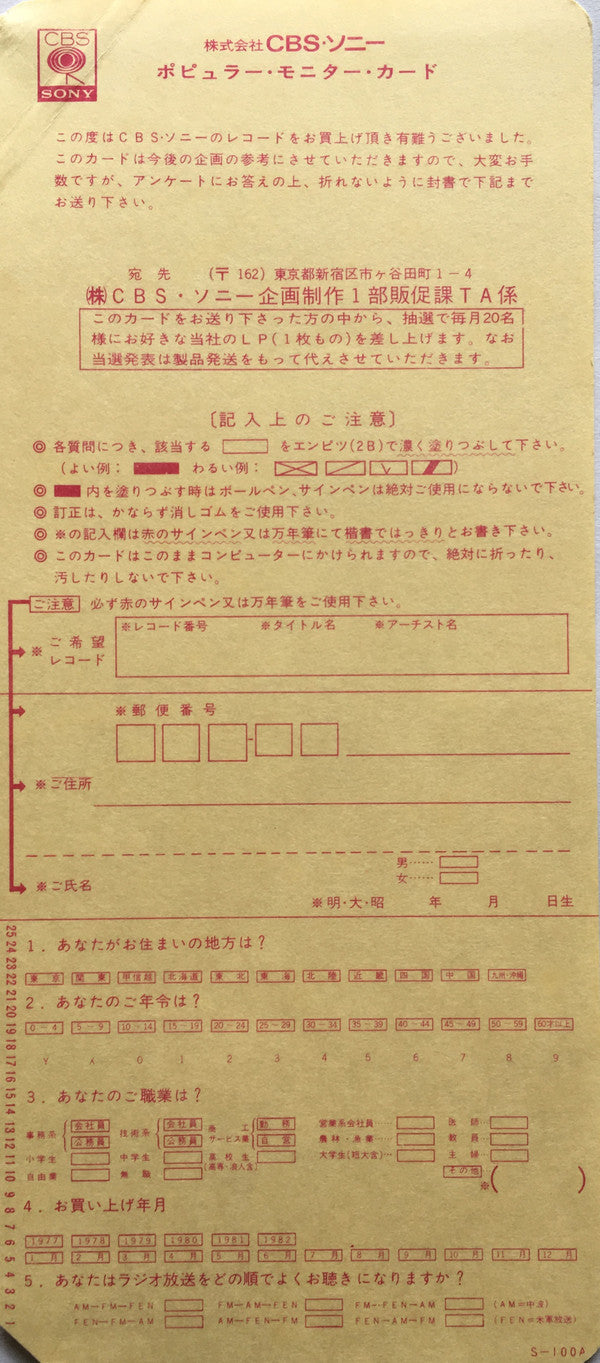 CBS
SONY
株式会社CBS・ソニー
ポピュラー・モニター・カード
この度はCBS・ソニーのレコードをお買上げ頂き有難うございました。
このカードは今後の企画の参考にさせていただきますので、大変お手
数ですが、アンケートにお答えの上、折れないように封書で下記まで
お送り下さい。
宛先 (〒162) 東京都新宿区市ヶ谷田町1-4
㈱CBS・ソニー企画制作1部販促課TA係
このカードをお送り下さった方の中から、抽選で毎月20名
様にお好きな当社のLP(1枚もの)を差し上げます。なお
当選発表は製品発送をもって代えさせていただきます。
〔記入上のご注意〕
◎ 各質問につき、該当する をエンピツ(2B)で濃く塗りつぶして下さい。
(よい例: わるい例: )
◎ 内を塗りつぶす時はボールペン、サインペンは絶対ご使用にならないで下さい。
◎ 訂正は、かならず消しゴムをご使用下さい。
◎ ※の記入欄は赤のサインペン又は万年筆にて楷書ではっきりとお書き下さい。
◎ このカードはこのままコンピューターにかけられますので、絶対に折ったり、
汚したりしないで下さい。
ご注意 必ず赤のサインペン又は万年筆をご使用下さい。
※レコード番号 ※タイトル名 ※アーチスト名
※ご希望
レコード
※郵便番号
※ご住所
男……
女……
※ご氏名
※明・大・昭 年 月 日生
25 24 23 22 21 20 19 18 17 16 15 14 13 12 11 10 9 8 7 6 5 4 3 2 1
1. あなたがお住まいの地方は?
東京 関東 甲信越 北海道 東北 東海 北陸 近畿 四国 中国 九州・沖縄
2. あなたのご年令は?
0-4 5-9 10-14 15-19 20-24 25-29 30-34 35-39 40-44 45-49 50-59 60才以上
Y 人 0 1 2 3 4 5 6 7 8 9
3. あなたのご職業は?
事務系 会社員 技術系 会社員 商工サービス業 勤務 営業系会社員…… 医師……
公務員 公務員 自営 農林・漁業…… 教員……
小学生 中学生 高校生(高専・浪人含) 大学生(短大含)… 主婦……
自由業 無職 その他
※( )
4. お買い上げ年月
1977 1978 1979 1980 1981 1982
1月 2月 3月 4月 5月 6月 7月 8月 9月 10月 11月 12月
5. あなたはラジオ放送をどの順でよくお聴きになりますか?
AM→FM→FEN FM→AM→FEN FM→FEN→AM (AM=中波)
FEN→FM→AM AM→FEN→FM FEN→AM→FM (FEN=米軍放送)
S-100A